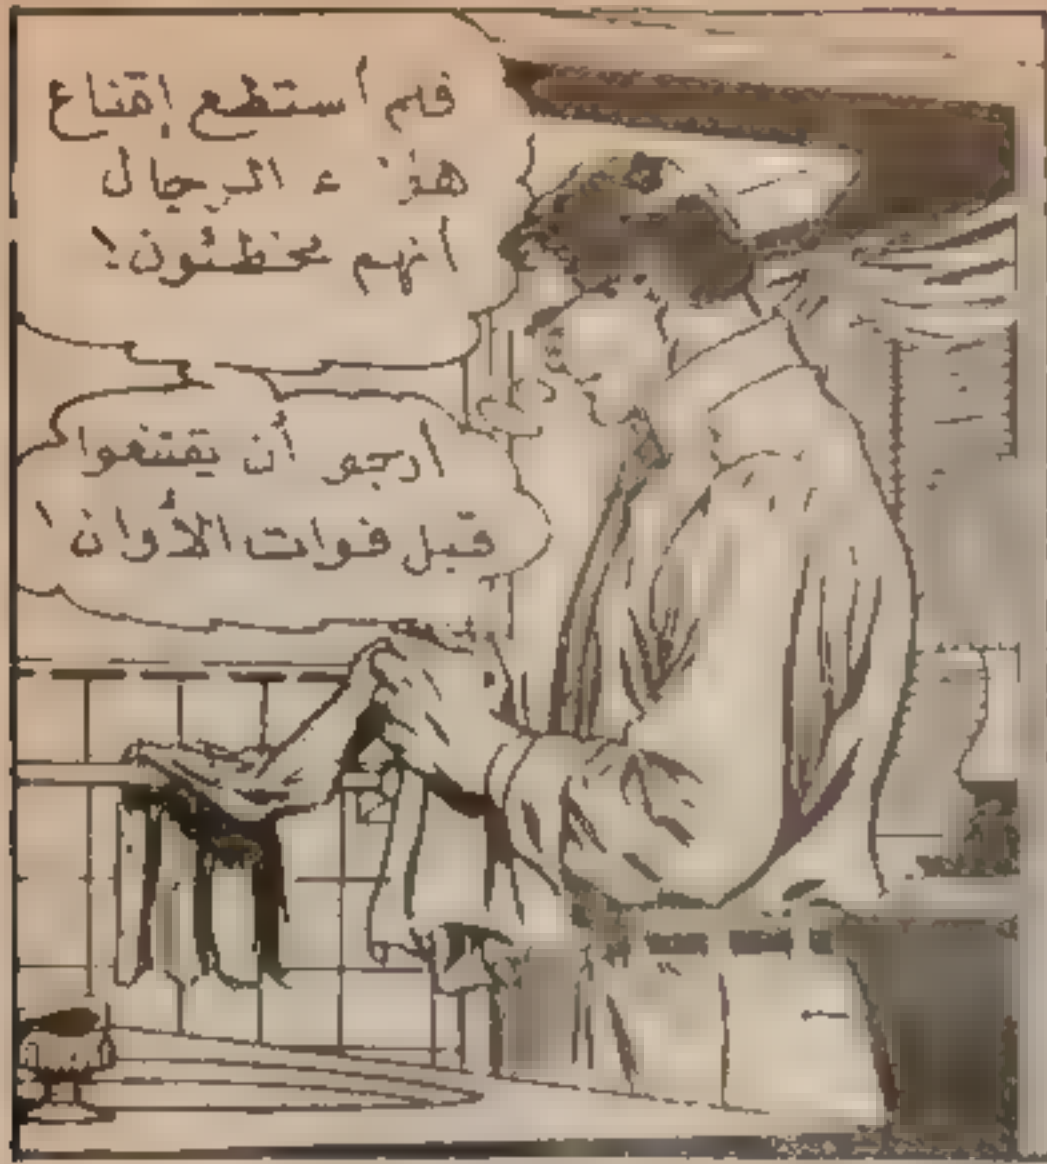 فلم أستطع إقناع
هؤلاء الرجال
أنهم مخطئون!
أرجو أن يقتنعوا
قبل فوات الأوان!